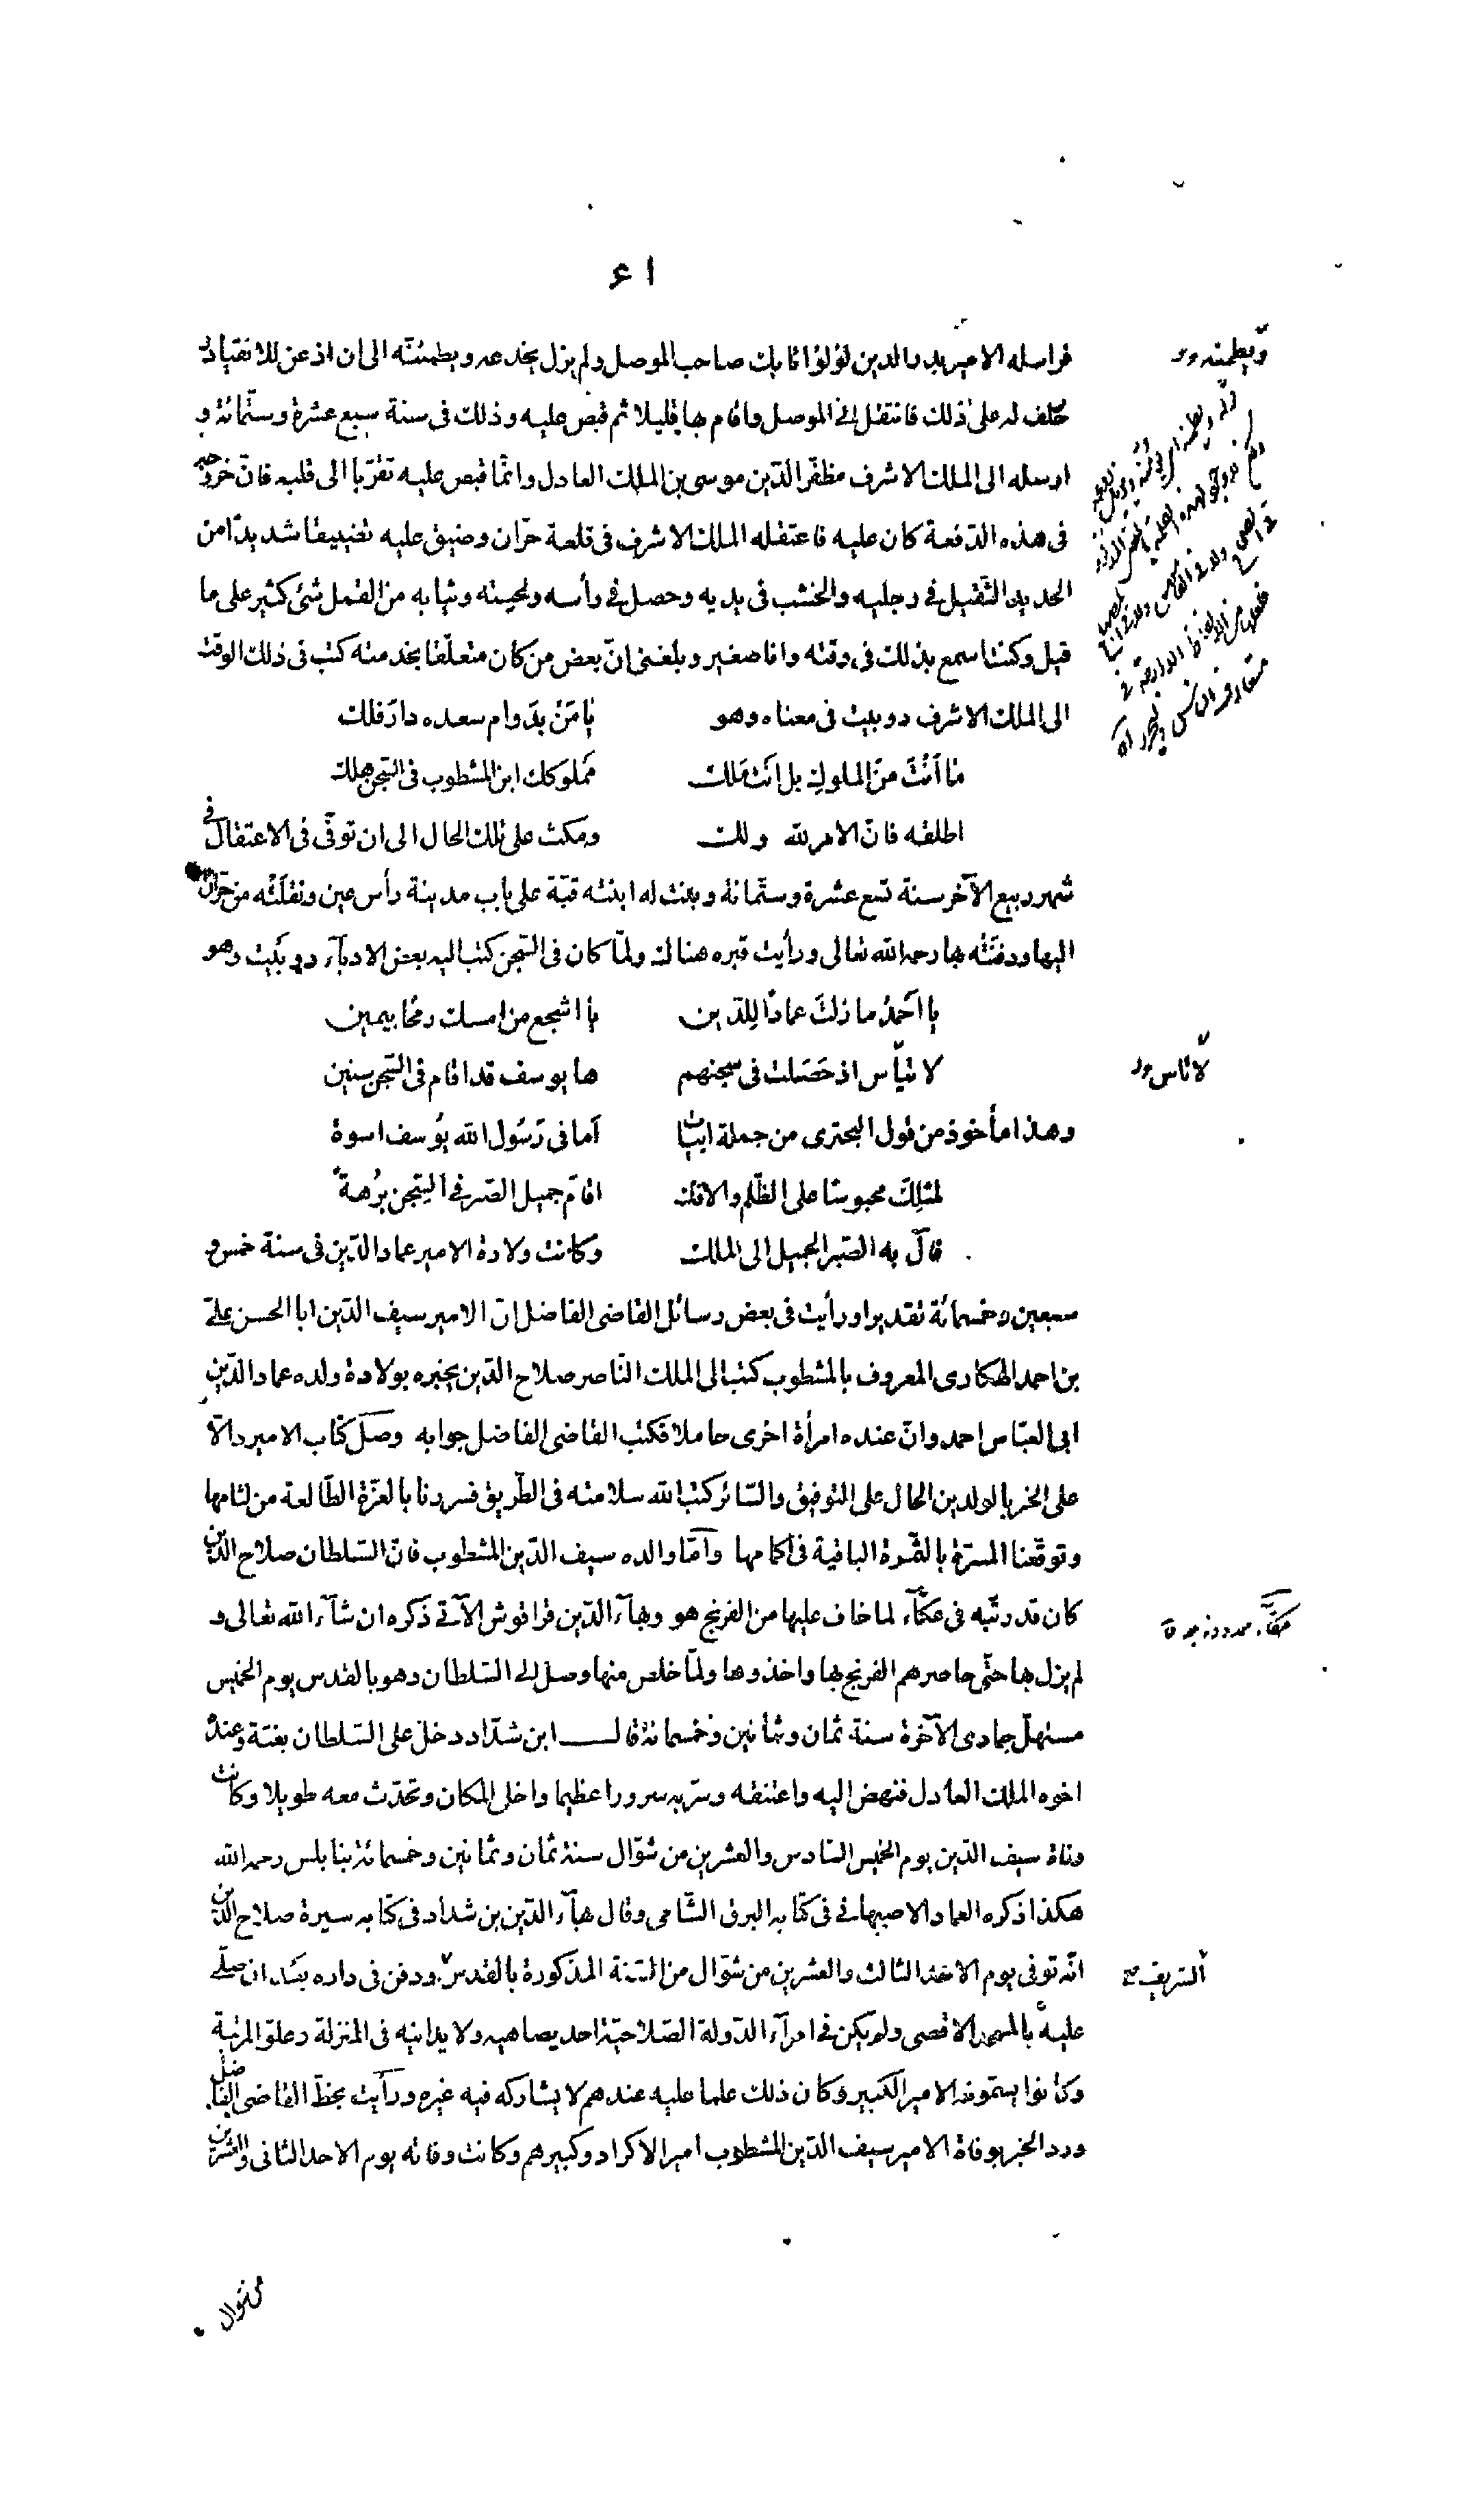 ٦١
فراسله الامير بدر الدين لؤلؤ اتابك صاحب الموصل ولم يزل يخدعه ويطمئنّه الى ان اذعن للانقياد
حلف له على ذلك فانتقل الى الموصل واقام بها قليلا ثم قبض عليه وذلك فى سنة سبع عشرة وستّمائة و
ارسله الى الملك الاشرف مظفّر الدّين موسى بن الملك العادل وانّما قبض عليه تقرّبا الى قلبه فانّ خروجه
فى هذه الدّفعة كان عليه فاعتقله الملك الاشرف فى قلعة حرّان وضيق عليه تضييقا شديدًا من
الحديد الثّقيل فى رجليه والخشب فى يديه وحصل فى رأسه ولحيته وثيابه من القمل شئ كثير على ما
قيل وكنت اسمع بذلك فى وقته وانا صغير وبلغنى انّ بعض من كان متعلّقا بخدمته كتب فى ذلك الوقت
الى الملك الاشرف دوبيت فى معناه وهو يا مَنْ بدَوام سعده دارَ فلك
مَا أَنْتَ منَ الملوكِ بل انتَ مَلك مَملوكك ابن المشطوب فى السّجن هلك
اطلقه فانّ الامر لله ولك ومكث على تلك الحال الى ان توفّى فى الاعتقال فى
شهر ربيع الآخر سنة تسع عشرة وستّمائة وبنت له ابنته قبّة على باب مدينة رأس عين ونقلَتْه من حرّان
اليها ودفنَتْه بها رحمه الله تعالى ورأيت قبره هناك ولمّا كان فى السّجن كتب اليه بعض الادبآء دوبَيت وهو
يا أحْمدُ ما زلتَ عمادًا لِلدّين يا اشجع من امسك رمحًا بيمين
لا تيأس اذ حَصَلت فى سجنهم ها يوسف قد اقام فى السّجن سنين
وهذا مأخوذ من قول البحترى من جملة ابيات أما فى رَسُول الله يُوسف اسوة
لمثلِكَ محبوسًا على الظّلم والافك اقامَ جميل الصّبر فى السّجن بُرْهةً
فآلَ به الصّبر الجميل الى الملك وكانت ولادة الامير عماد الدّين فى سنة خمس و
سبعين وخمسمائة تقديرا ورأيت فى بعض رسائل القاضى الفاضل انّ الامير سيف الدّين ابا الحسن علىّ
بن احمد الهكارى المعروف بالمشطوب كتب الى الملك النّاصر صلاح الدّين يخبره بولادة ولده عماد الدّين
ابى العبّاس احمد وانّ عنده امرأة اخرى حاملا فكتب القاضى الفاضل جوابه وصَلَ كتاب الامير دالّا
على الخبر بالولدين الحال على التوفيق والسّائر كتب الله سلامته فى الطّريق فسررنا بالغرّة الطّالعة من لثامها
وتوقّعنا المسرّة بالثّمرة الباقية فى اكمامها وأمّا والده سيف الدّين المشطوب فانّ السّلطان صلاح الدّين
كان قد رتّبه فى عكّآء لما خاف عليها من الفرنج هو وبهآء الدّين قراقوش الآتى ذكره ان شآء الله تعالى و
لم يزل بها حتّى حاصرهم الفرنج بها واخذوها ولمّا خلص منها وصل الى السّلطان وهو بالقدس يوم الخميس
مستهلّ جمادى الآخرة سنة ثمان وثمانين وخمسمائة قال ابن شدّاد دخل على السّلطان بغتة وعنده
اخوه الملك العادل فنهض اليه واعتنقه وسرّ به سرورا عظيما واخلى المكان وتحدّث معه طويلا وكانت
وفاة سيف الدّين يوم الخميس السّادس والعشرين من شوّال سنة ثمان وثمانين وخمسمائة بنابلس رحمه الله
هكذا ذكره العماد الاصبهانى فى كتابه البرق الشّامى وقال بهآء الدّين بن شداد فى كتابه سيرة صلاح الدّين
انّه توفى يوم الاحد الثالث والعشرين من شوّال من السّنة المذكورة بالقدس ودفن فى داره بعد ان صلّى
عليه بالمسجد الاقصى ولم يكن فى امرآء الدّولة الصّلاحيّة احد يضاهيه ولا يدانيه فى المنزلة وعلوّ المرتبة
وكانوا يسمّونه الامير الكبير وكان ذلك علما عليه عندهم لا يشاركه فيه غيره ورأيت بخطّ القاضى الفاضل
ورد الخبر بوفاة الامير سيف الدّين المشطوب امير الاكراد وكبيرهم وكانت وفاته يوم الاحد الثانى والعشرين
ويطمنه
لا تاس
الشريف
من شوال